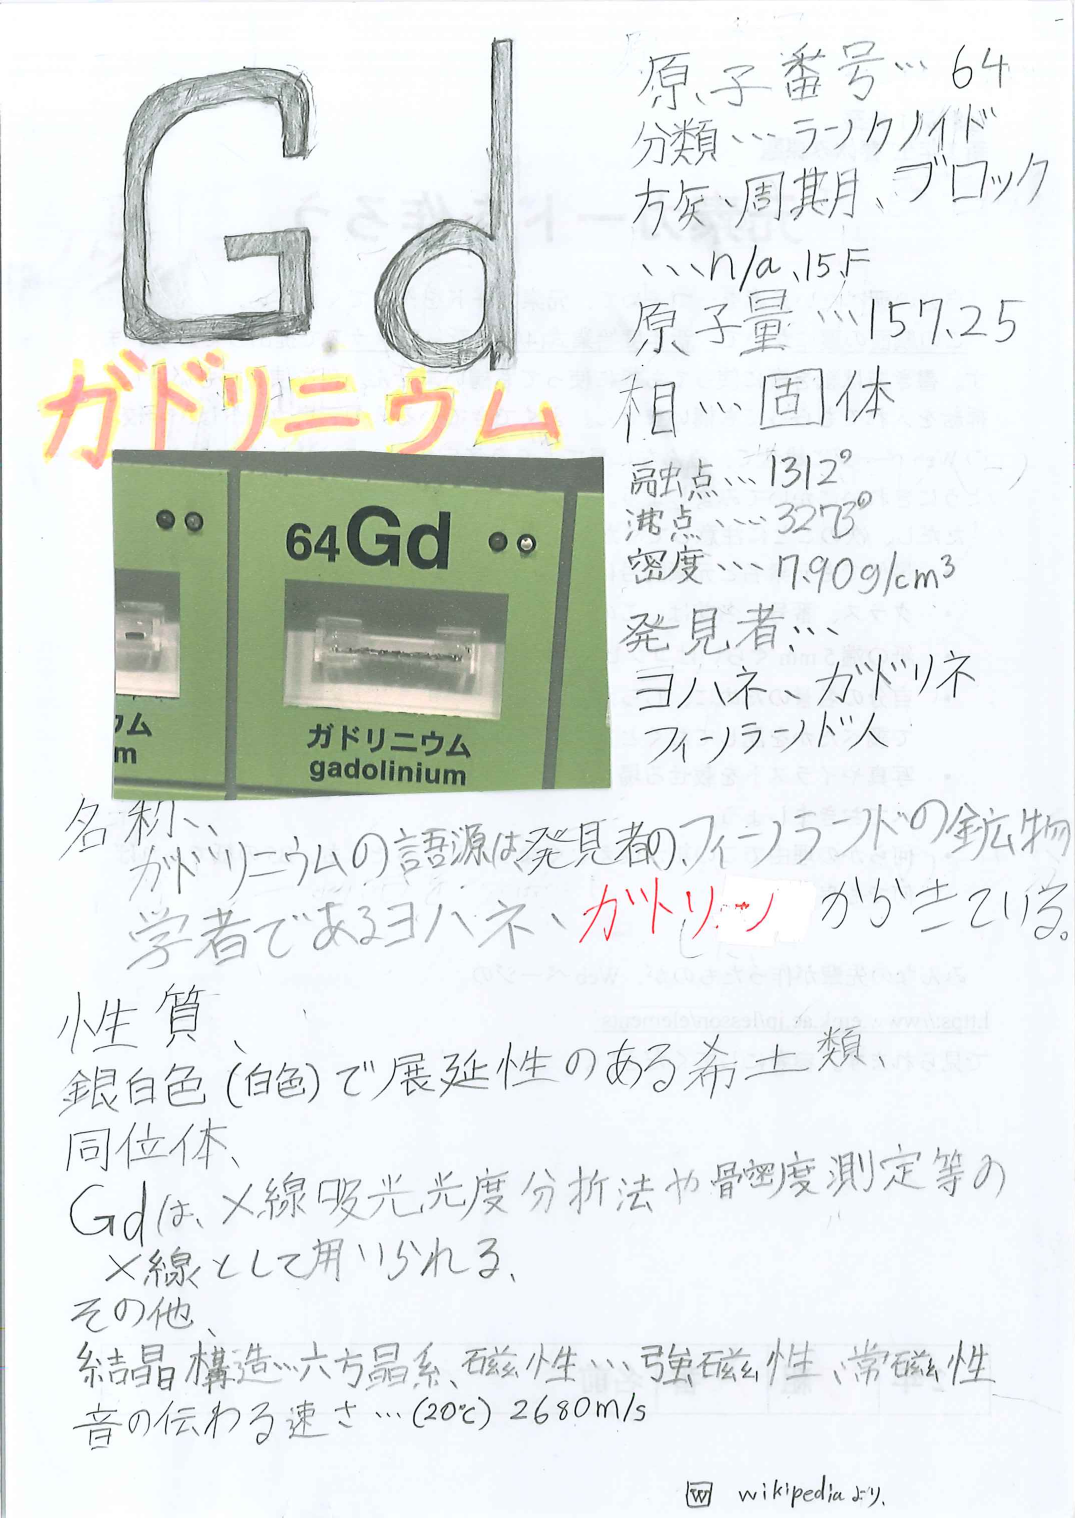 Gd
ガドリニウム
64Gd
ガドリニウム
gadolinium
ウム
m
原子番号… 64
分類…ランタノイド
族、周期、ブロック
…n/a、15、F
原子量…157.25
相…固体
融点…1312°
沸点…3273°
密度…7.90g/cm³
発見者…
ヨハネ、ガドリネ
フィンランド人
名称、
ガドリニウムの語源は、発見者の、フィンランドの鉱物
学者であるヨハネ、ガドリン からきている。
性質、
銀白色(白色)で展延性のある希土類
同位体、
Gdは、X線吸光光度分析法や骨密度測定等の
X線として用いられる、
その他、
結晶構造…六方晶系、磁性…強磁性、常磁性
音の伝わる速さ…(20℃) 2680m/s
W wikipediaより、